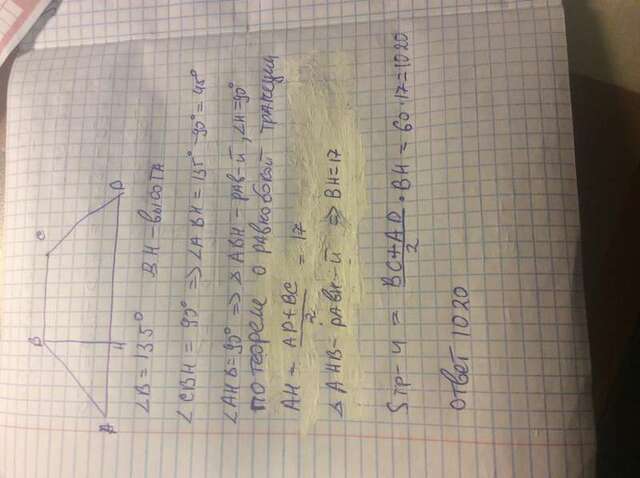 B C
A H D
∠B = 135° BH - высота
∠CBH = 90° => ∠ABH = 135° - 90° = 45°
∠AHB = 90° => △ABH - рав-й, ∠H = 90°
по теореме о равнобокой трапеции
AH = (AD + BC) / 2 = 17
△AHB - равн-й => BH = 17
Sтр-и = (BC + AD) / 2 · BH = 60 · 17 = 1020
Ответ 1020